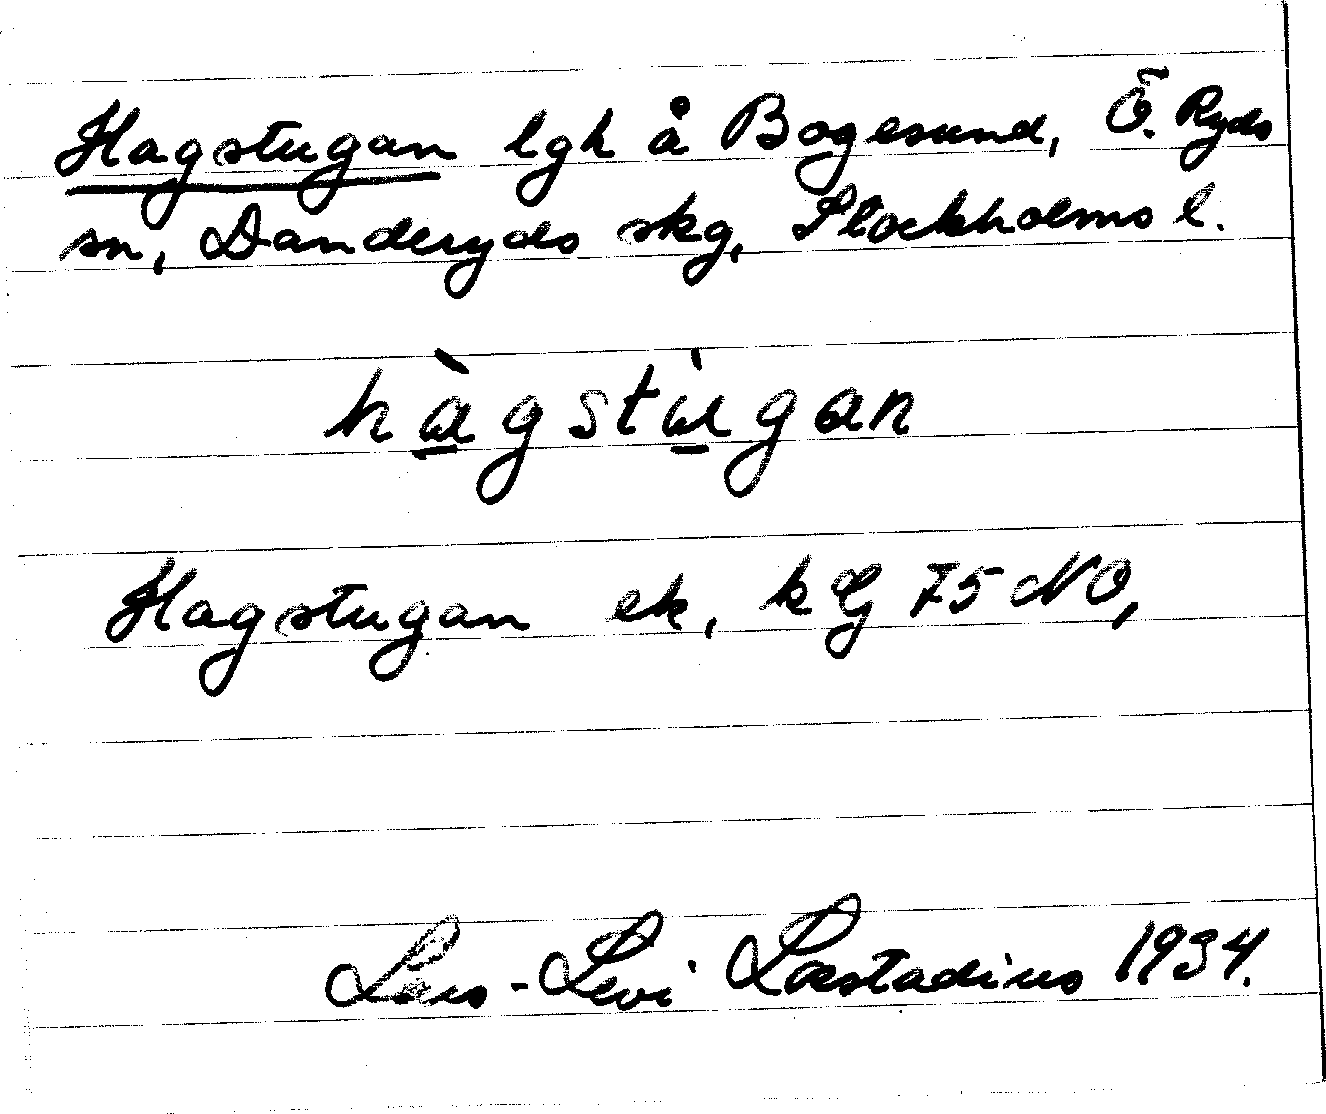 Hagstugan lgh å Bogesund, Ö. Ryds
sn, Danderyds skg, Stockholms l.
hà̱gstù̱gan
Hagstugan ek, k Lj 75 NO,
Lars-Levi Læstadius 1934.